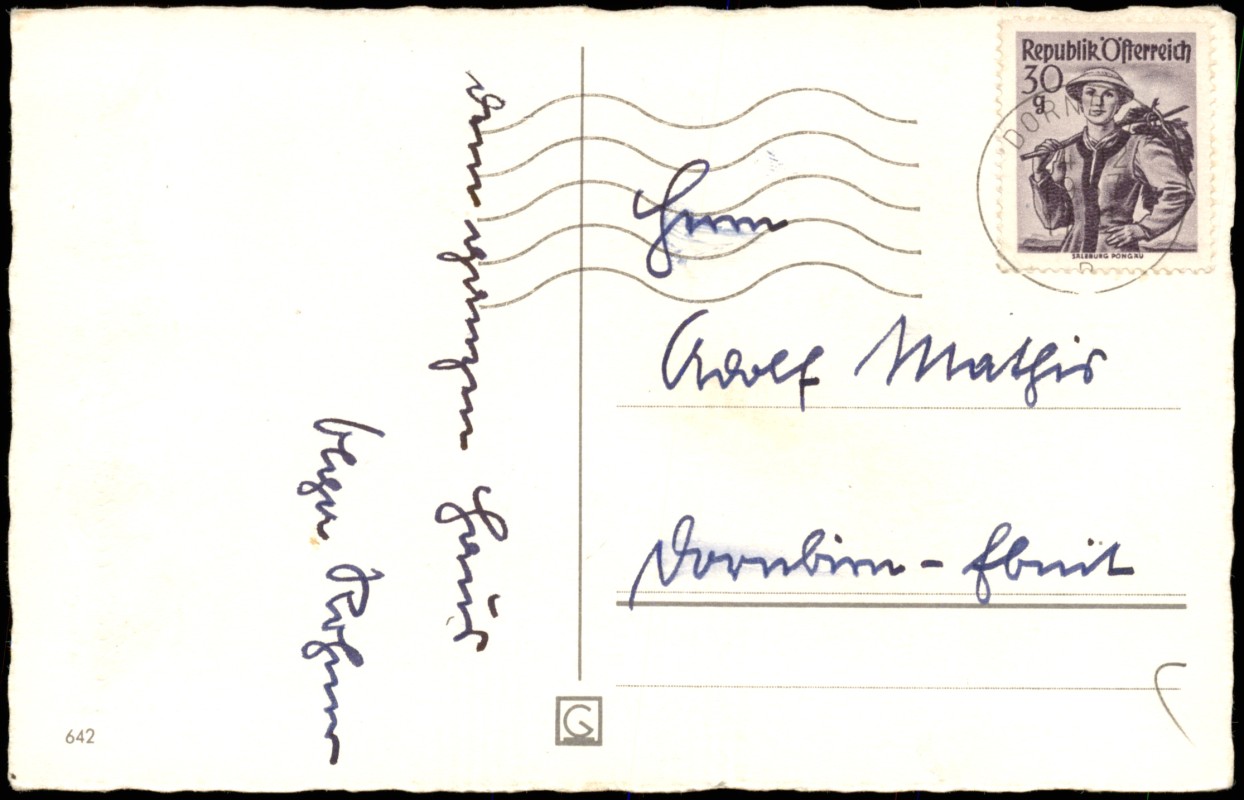 Republik Österreich
30
g
SALZBURG PONGAU
DORN
Herrn
Adolf Mathis
Dornbirn - Ebnit
dem ganzen Haus
Rohner
642
G